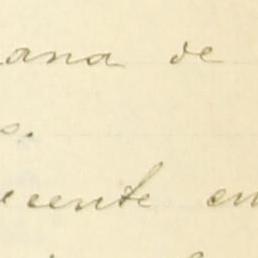 ana de
s.
ecente en